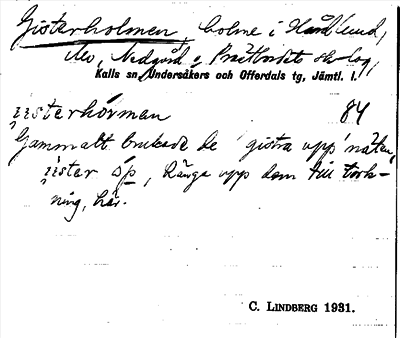 Gisterholmen, holme i Hådlund,
Mo, Nedgård o Prästbordets sk-lag,
Kalls sn, Undersåkers och Offerdals tg, Jämtl. l.
jisterhòrman 84
Gammalt brukade de 'gistra upp' näten,
jister óp, hänga upp dem till tork-
ning, här.
C. LINDBERG 1931.